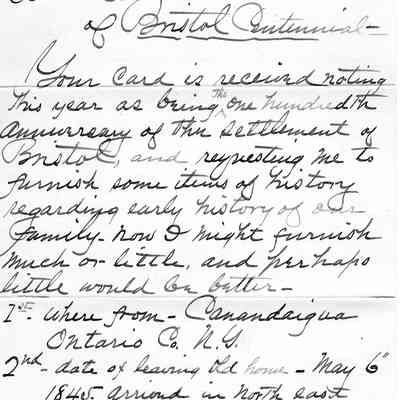 of Bristol Centennial-
Your Card is received noting
this year as being the one hundredth
anniversary of the settlement of
Bristol, and requesting me to
furnish some items of history
regarding early history of our
family- now I might furnish
much or little, and perhaps
little would be better-
1st- where from- Canandaigua
Ontario Co. N.Y.
2nd- date of leaving old home- May 6"
1845. arrived in North east